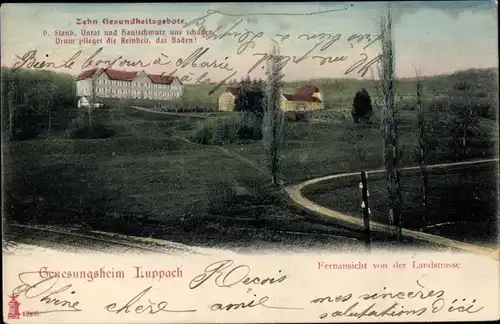 Zehn Gesundheitsgebote.
6. Staub, Unrat und Hautschmutz uns schaden,
Drum pfleget die Reinheit, das Baden!
Bien le bonjour à Marie
Genesungsheim Luppach
Fernansicht von der Landstrasse
Reçois
chère amie
mes sincères
salutations d'ici